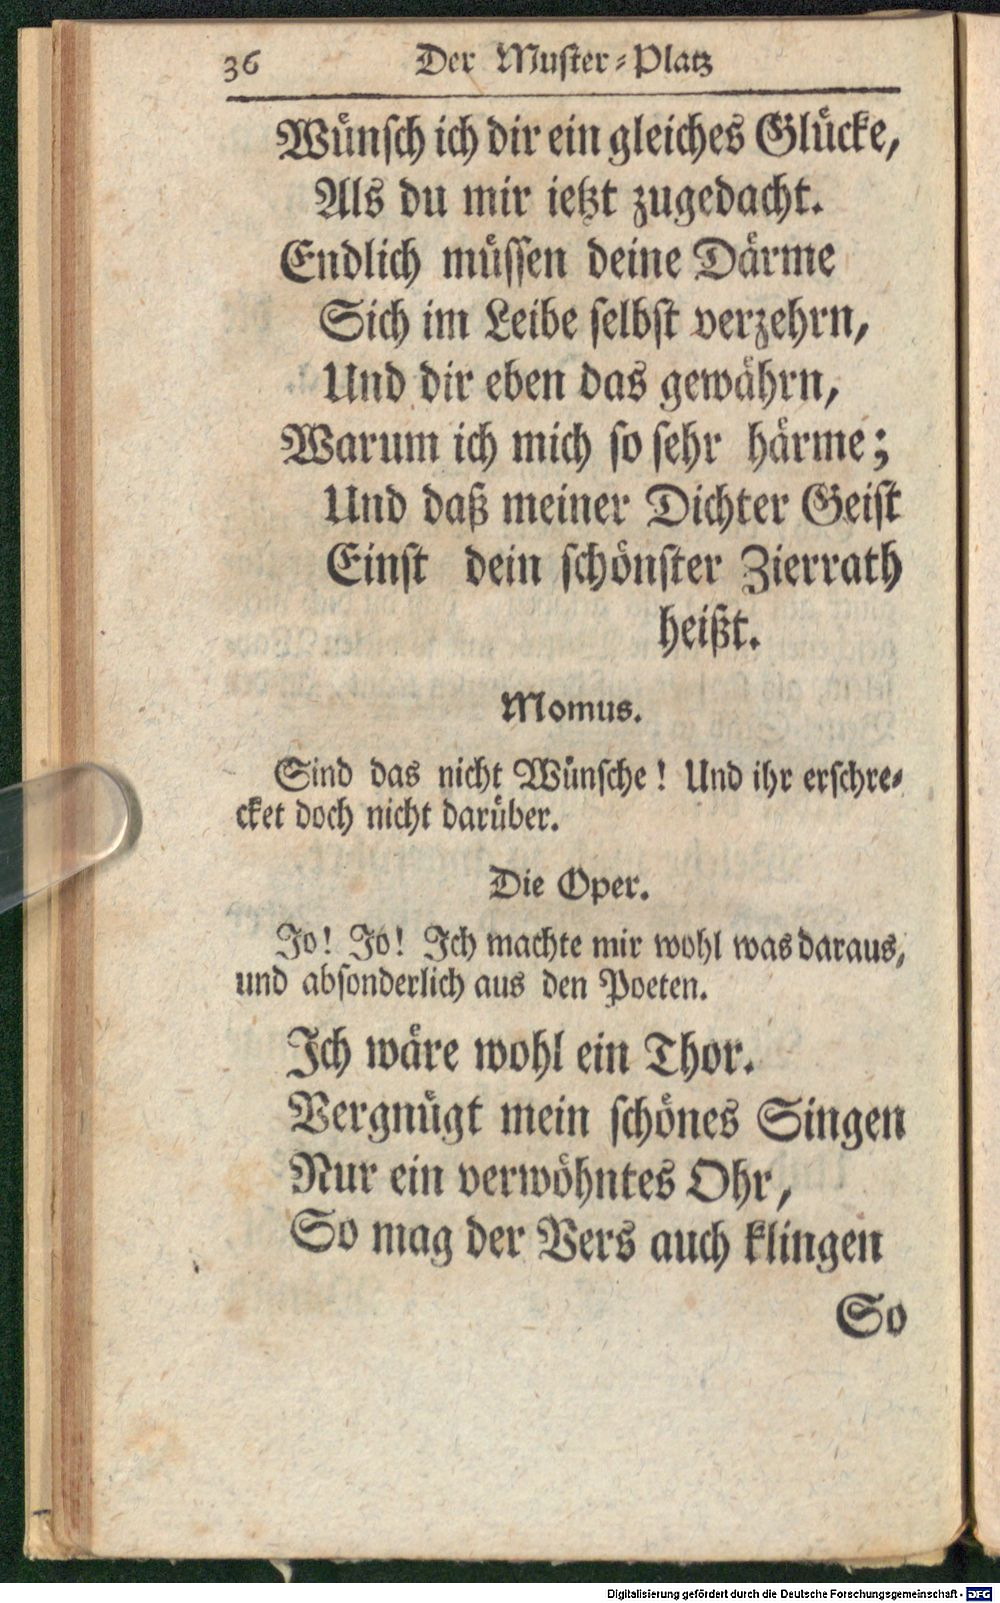 36 Der Muster-Platz
Wünsch ich dir ein gleiches Glücke,
Als du mir ietzt zugedacht.
Endlich müssen deine Därme
Sich im Leibe selbst verzehrn,
Und dir eben das gewährn,
Warum ich mich so sehr härme;
Und daß meiner Dichter Geist
Einst dein schönster Zierrath
heißt.
Momus.
Sind das nicht Wünsche! Und ihr erschre-
cket doch nicht darüber.
Die Oper.
Jo! Jo! Ich machte mir wohl was daraus,
und absonderlich aus den Poeten.
Ich wäre wohl ein Thor.
Vergnügt mein schönes Singen
Nur ein verwöhntes Ohr,
So mag der Vers auch klingen
So
Digitalisierung gefördert durch die Deutsche Forschungsgemeinschaft - DFG